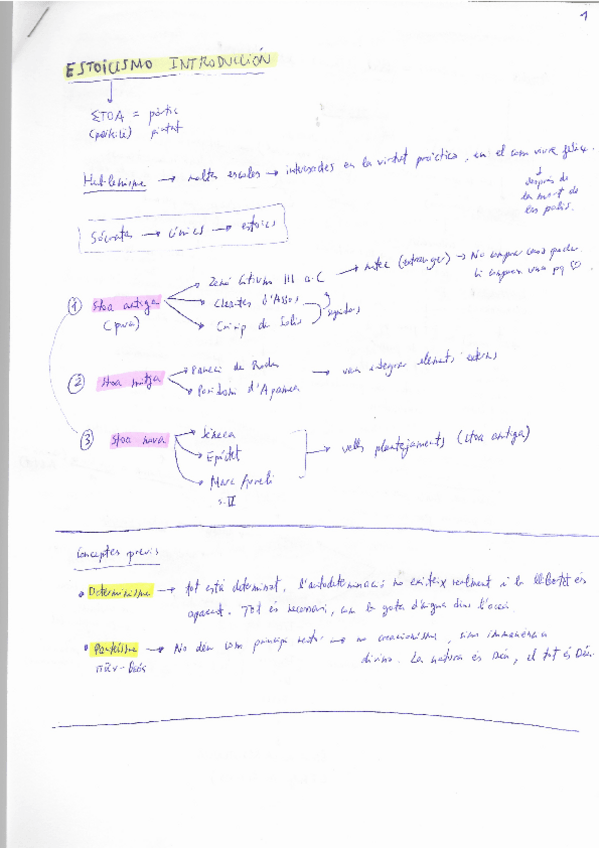 1
ESTOICISMO INTRODUCCIÓN
ΣTOA = pòrtic
(poikilé) pintat
Hel·lenisme → moltes escoles → interessades en la virtut pràctica, en el com viure feliç.
després de
la mort de
les polis.
Sócrates → cínics → estoics
① Stoa antiga (pura)
Zenó Citium III a.C → metec (estranger) → No
Cleantes d'Assos
Crisip de Solis
seguidors
② Stoa mitja
Paneci de Rodes
Posidoni d'Apamea
→ van integrar elements externs
③ Stoa nova
Sèneca
Epictet
Marc Aureli
s. II
→ vells plantejaments (stoa antiga)
Conceptes previs
• Determinisme → tot està determinat, l'autodeterminació no existeix realment i la llibertat és
aparent. Tot és necessari, com la gota d'aigua dins l'oceà.
• Panteisme → No déu com principi rector → no creacionisme, sino immanència
πᾶν - θεός divina. La natura és Déu, el tot és Déu.